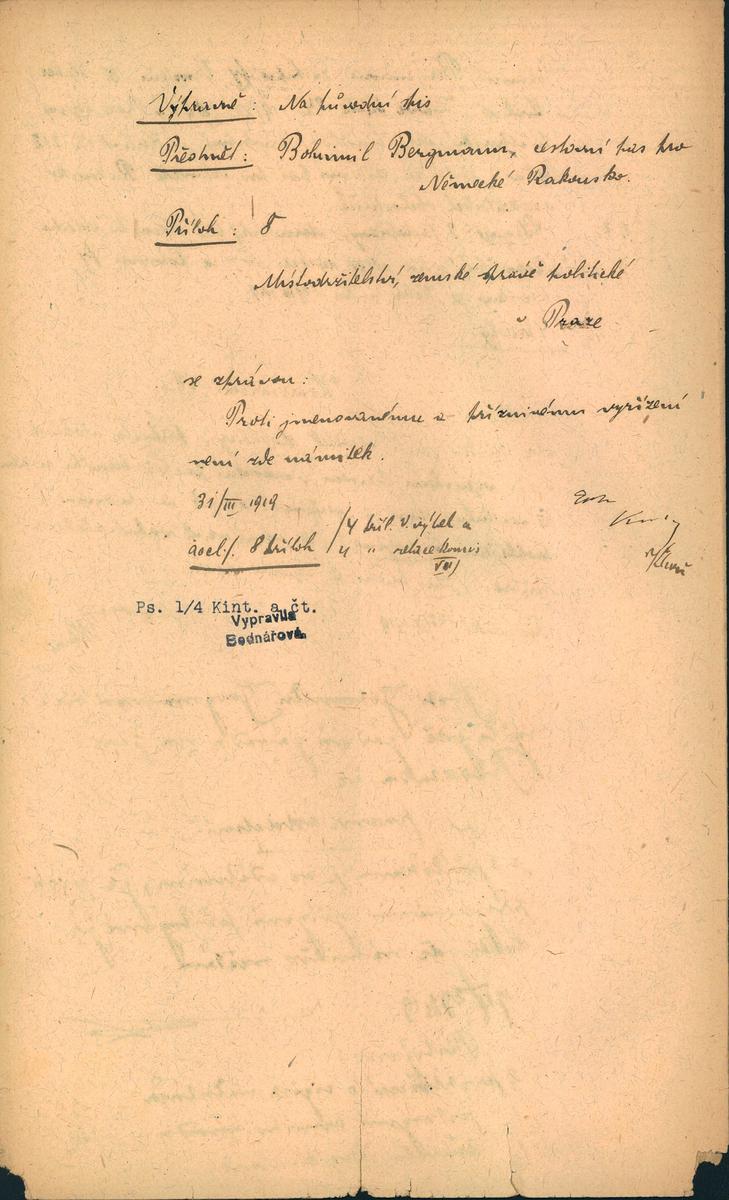 Výpravně: Na původní spis
Předmět: Bohumil Bergmann, cestovní pas pro
Německé Rakousko.
Příloh: 8
Místodržitelství, zemské správě politické
v Praze
se zprávou:
Proti jmenovanému a příznivému vyřízení
není zde námitek.
31/III 1919
4 příl. v. výtek a
acel./. 8 příloh
4 " relace komis
VII)
Ps. 1/4 Kint. a čt.
Vypravila
Bednářová.